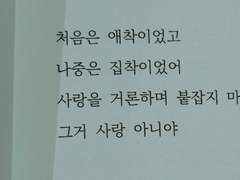 처음은 애착이었고
나중은 집착이었어
사랑을 거론하며 붙잡지 마
그거 사랑 아니야